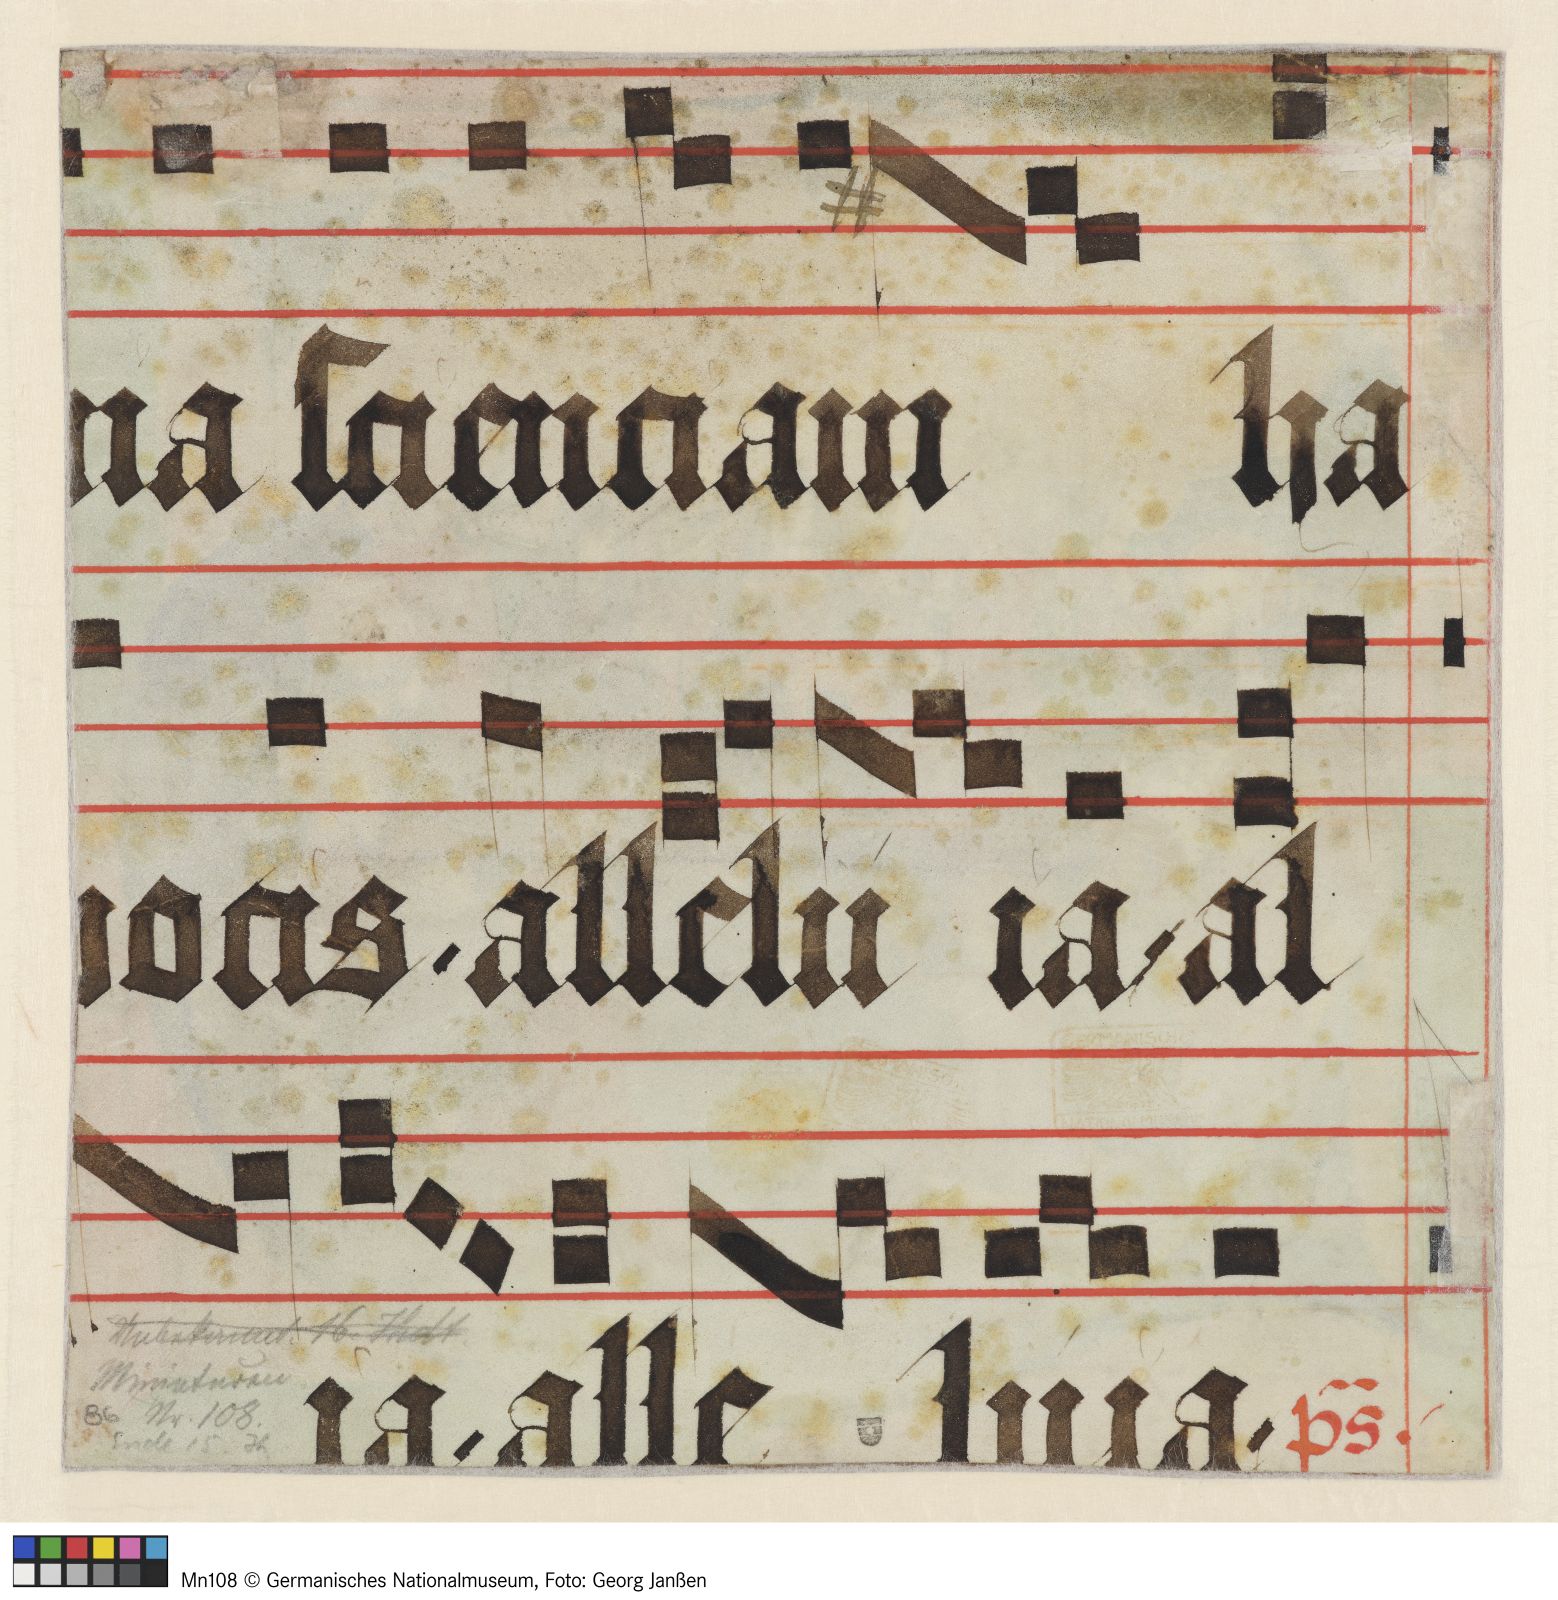 na scientiam ha
vocis. allelu ia. al
ia. alle luia. ps.
Unbekannt. 16. Jhdt.
Miniaturen
86 Nr. 108.
Ende 15. Jh
Mn108 © Germanisches Nationalmuseum, Foto: Georg Janßen